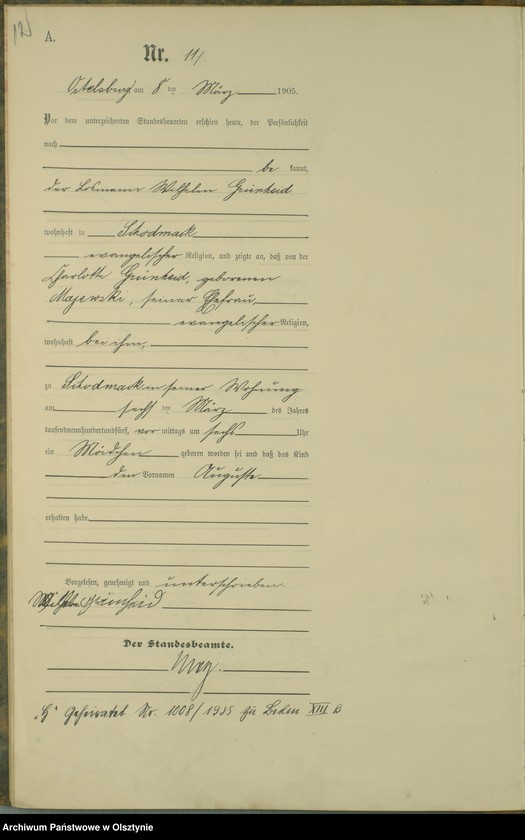 A.
Nr. 111
Ortelsburg am 8 ten März 1905.
Vor dem unterzeichneten Standesbeamten erschien heute, der Persönlichkeit
nach
be kannt,
der Losmann Wilhelm Grünheid
wohnhaft in Schodmack
evangelischer Religion, und zeigte an, daß von der
Charlotte Grünheid, geborenen
Majewski, seiner Ehefrau,
evangelischer Religion,
wohnhaft bei ihm,
zu Schodmack in seiner Wohnung
am sechs ten März des Jahres
tausendneunhundertundfünf, vor mittags um sechs Uhr
ein Mädchen geboren worden sei und daß das Kind
den Vornamen Auguste
erhalten habe.
Vorgelesen, genehmigt und unterschrieben
Wilhelm Grünheid
Der Standesbeamte.
Geheiratet Nr. 1008/1935 zu Berlin XIII B
Archiwum Państwowe w Olsztynie